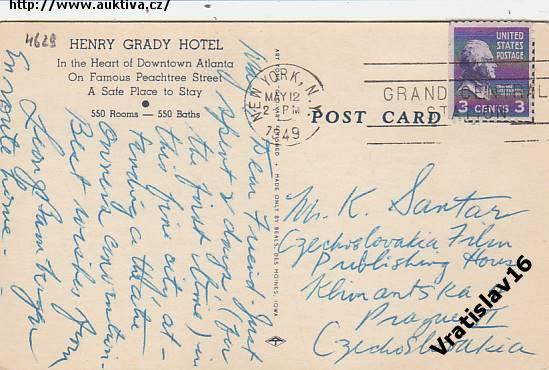 http://www.auktiva.cz/
4629
HENRY GRADY HOTEL
In the Heart of Downtown Atlanta
On Famous Peachtree Street
A Safe Place to Stay
550 Rooms — 550 Baths
Dear Friend Just
spent 2 days (for
the first time) in
this fine city, at-
tending a theatre
owners convention-
Best wishes from
En route home -
MADE ONLY BY BEALS, DES MOINES, IOWA
NEW YORK, N.Y.
MAY 12
PM
1949
GRAND CENTRAL
UNITED
STATES
POSTAGE
3 CENTS 3
POST CARD
Mr. K. Santar
Czechoslovakia Film
Publishing House
Klimentska
Prague II
Czechoslovakia
Vratislav16